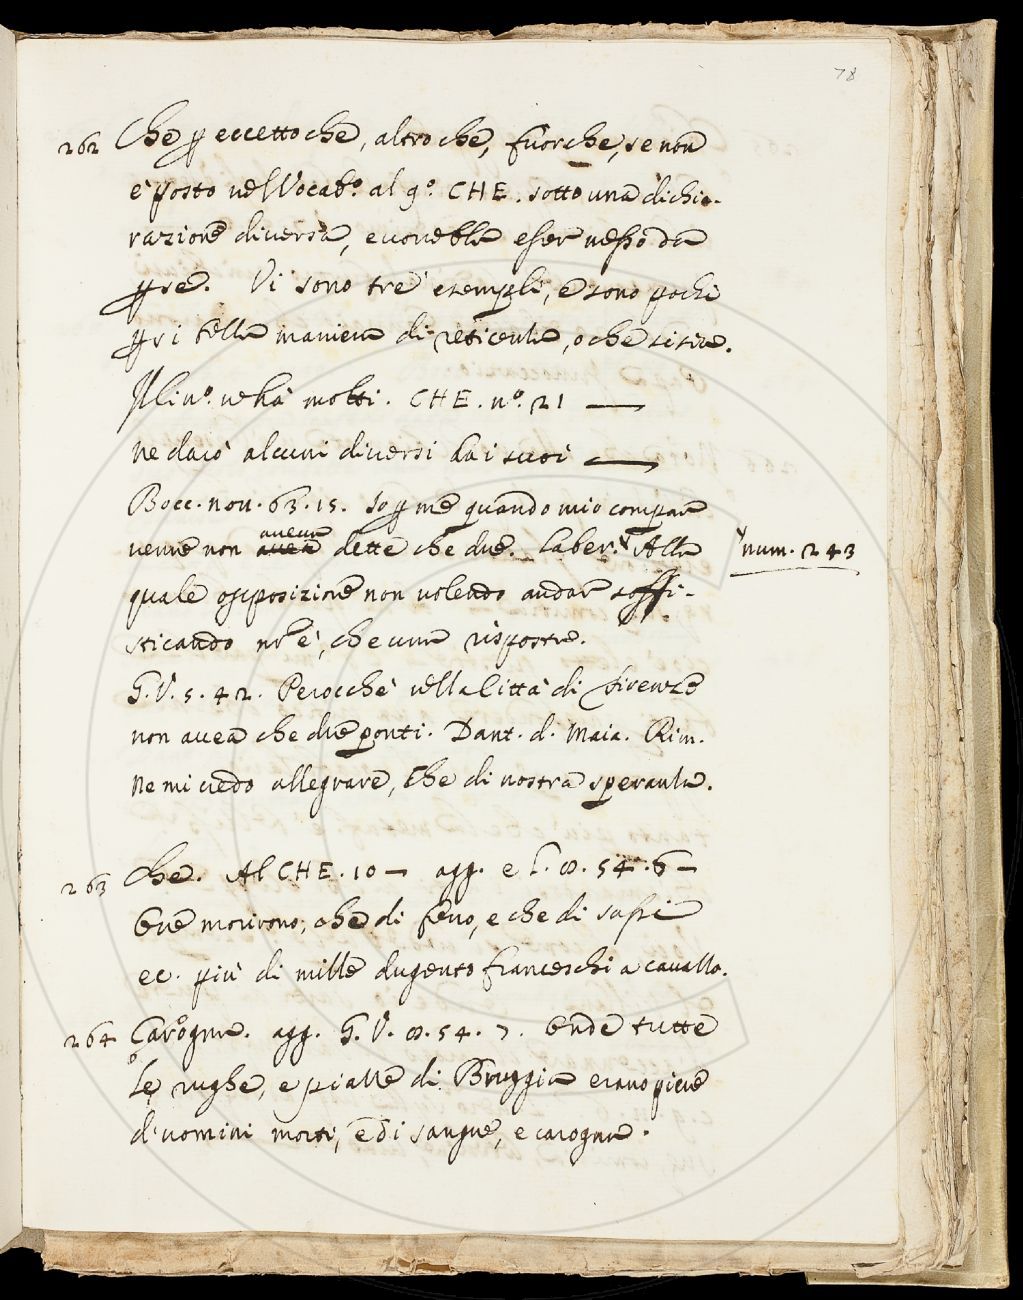 78
262 Che p eccetto che, altro che, fuorche, se non
è posto nel Vocab.º al 9.º CHE. sotto una dichia-
razione diversa, e vorrebbe esser messo da
p se. Vi sono tre esempli, e sono pochi
p sì bella maniera di reticenza, o che si sia.
Il Cin.º ne ha molti. CHE. n.º 21 —
ne darò alcuni diversi da i suoi —
Bocc. nov. 63. 15. So p me quando mio compare
venne non avea
avevam
dette che due. Laber. Alla
num. 243
quale opposizione non volendo andar soffi-
sticando non v'è, che una risposta.
G. V. 5. 42. Perocchè nella Città di Firenze
non avea che due ponti. Dant. d. Maia. Rim.
Ne mi credo allegrare, Che di vostra speranza.
263 Che. Al CHE. 10 — agg. e G. V. 8. 54. 6 —
Ove morirono, che di ferro, e che di sassi
ec. più di mille dugento franceschi a cavallo.
264 Carogna. agg. G. V. 8. 54. 7. Onde tutte
Le rughe, e piazze di Bruggia erano piene
d'uomini morti, e di sangue, e carogna.